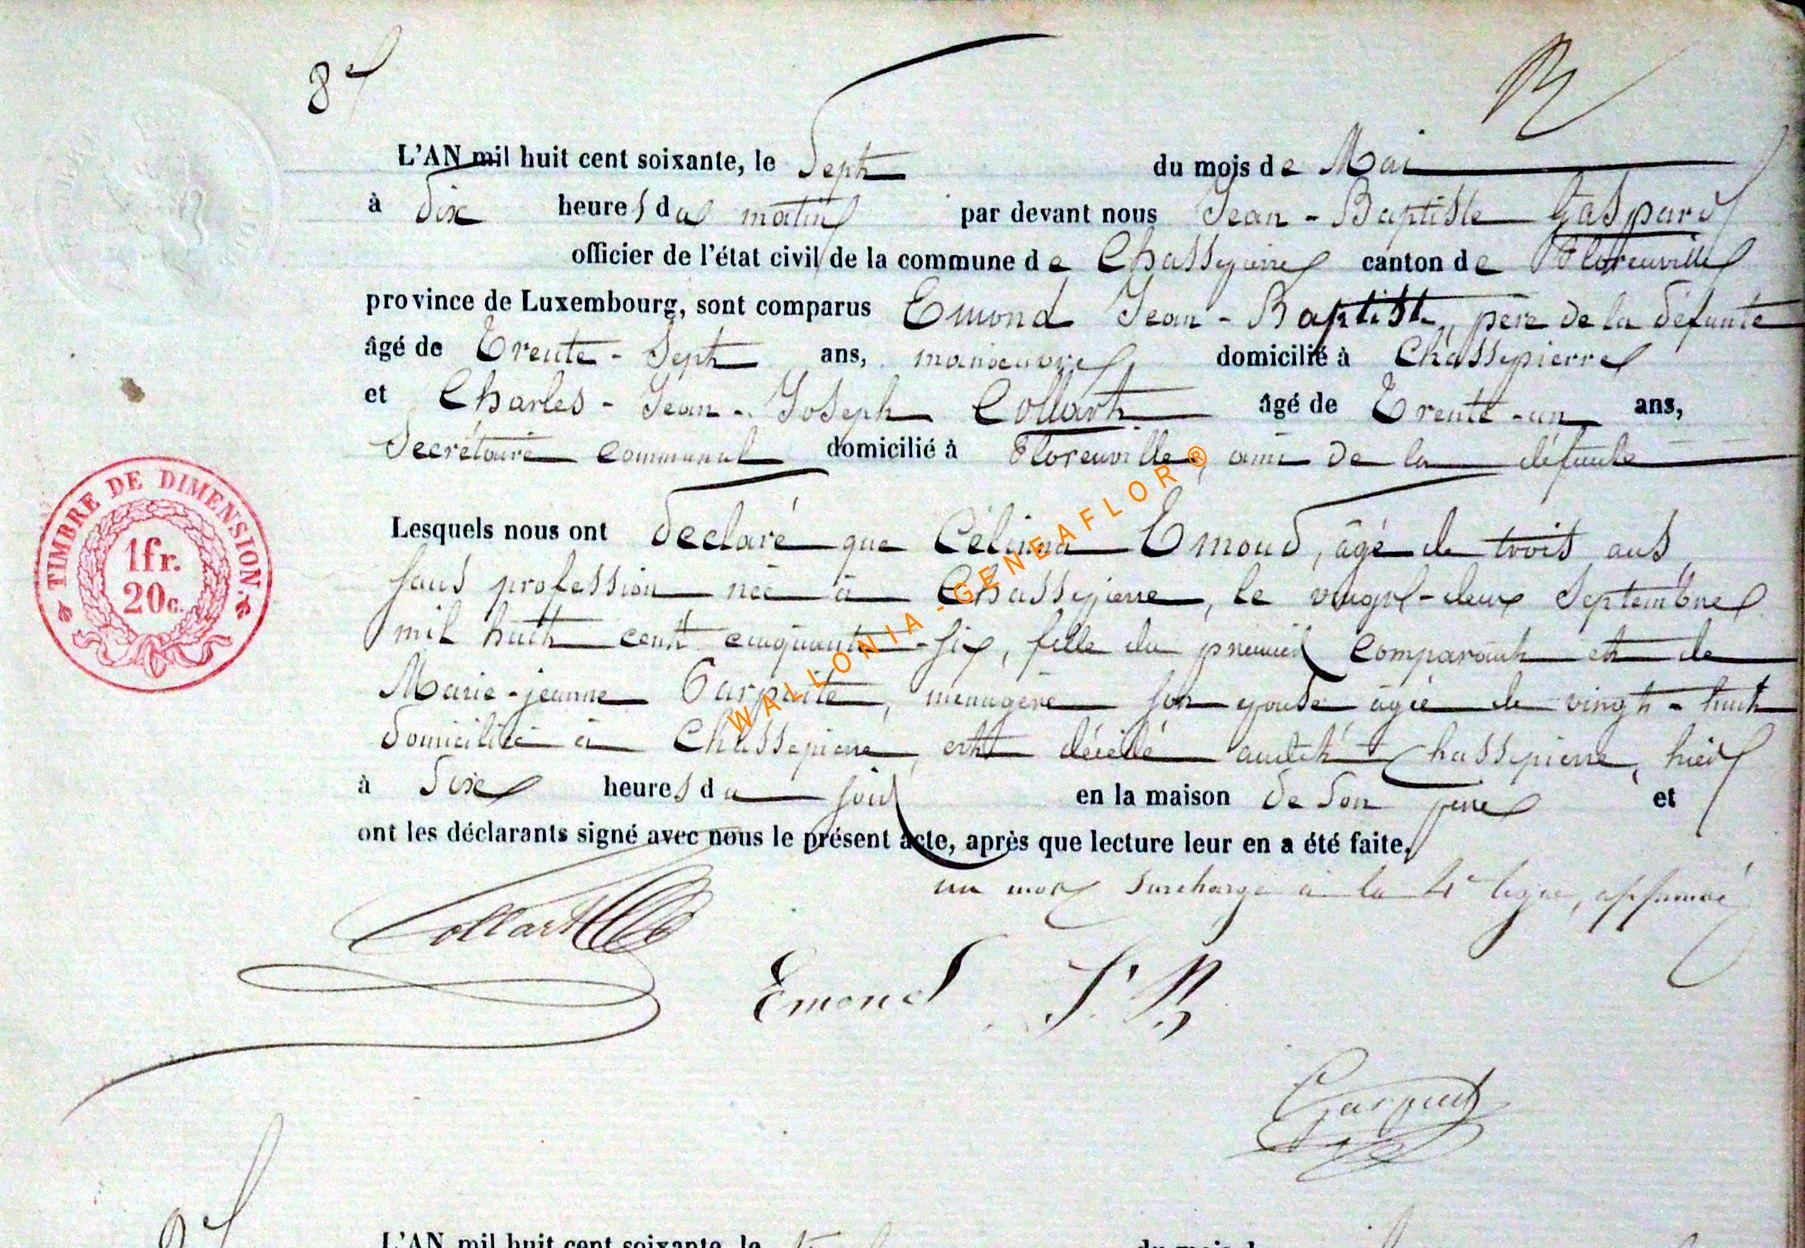 8e
L'AN mil huit cent soixante, le Sept du mois de Mai
à Dix heures du matin par devant nous Jean-Baptiste Gaspard
officier de l'état civil de la commune de Chassepierre canton de Florenville
province de Luxembourg, sont comparus Emond Jean-Baptiste, père de la défunte
âgé de Trente-Sept ans, manoeuvre domicilié à Chassepierre
et Charles-Jean-Joseph Collart âgé de Trente-un ans,
Secrétaire communal domicilié à Florenville, ami de la défunte
Lesquels nous ont déclaré que Célinna Emond, âgé de trois ans,
sans profession née à Chassepierre, le vingt-deux Septembre
mil huit cent cinquante-six, fille du premier comparant et de
Marie-jeanne, ménagère son épouse âgée de vingt-huit
domiciliée à Chassepierre, est décédé audit Chassepierre, hier
à Six heures du soir en la maison de Son père et
ont les déclarants signé avec nous le présent acte, après que lecture leur en a été faite.
un mot surchargé à la 4e ligne, approuvé
Collart
Emond J. B.
Gaspard
TIMBRE DE DIMENSION.
1fr.
20c.
WALLONIA - GENEAFLOR ®
L'AN mil huit cent soixante, le du mois de